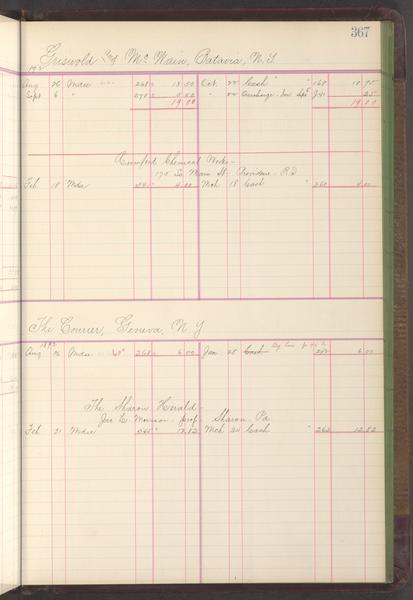 367
Griswold & Mc Wain, Batavia, N.Y.
Aug 26 Mdse 268 13 00 Oct. 22 Cash " 168 18 75
Sept 6 " 270 6 00 " 22 Overcharge Inv Sept J41 25
19 00 19 00
Rumford Chemical Works -
175 So. Main St. Providence - R.I.
Feb 18 Mdse 4 00 Mch 18 Cash " 260 4 00
The Courier, Geneva, N.Y
1892
Aug 26 Mdse 268 6 00 Jan 28 Cash 6 00
The Sharon Herald -
Jno L. Morrison - prop - Sharon Pa
Feb 21 Mdse 12 82 Mch 24 Cash " 262 12 82